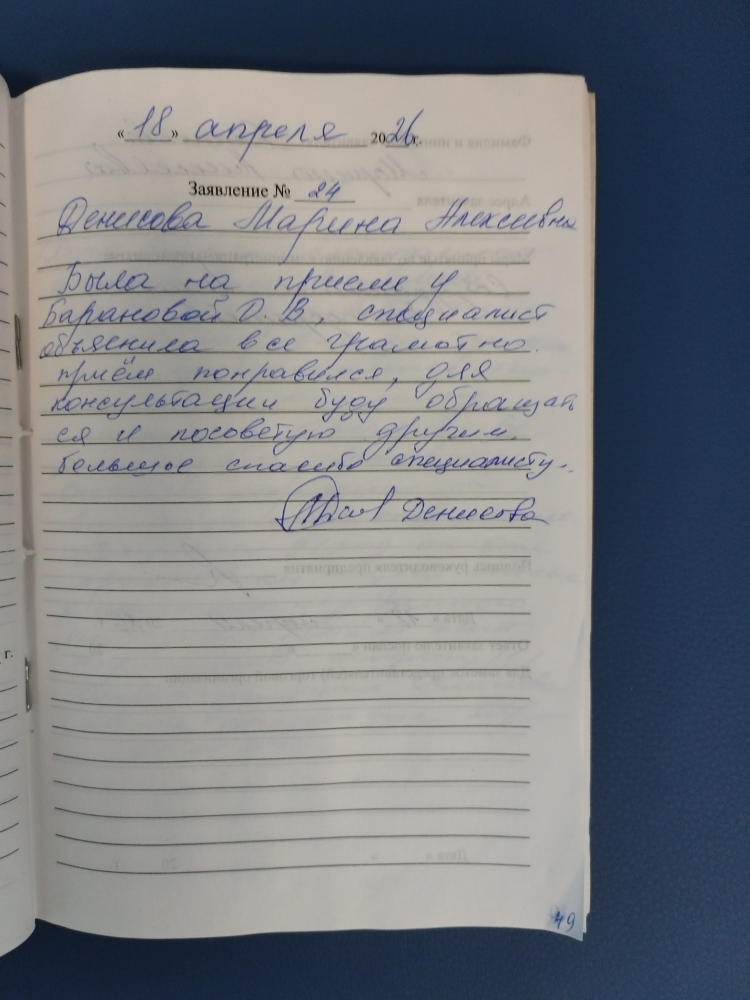 «18» апреля 2026г.
Заявление № 24
Денисова Марина Алексеевна
Была на приеме у
Барановой О. В, специалист
объяснила все грамотно.
приём понравился, для
консультации буду обращать
ся и посоветую другим.
большое спасибо специалисту.
Денисова
г.
49